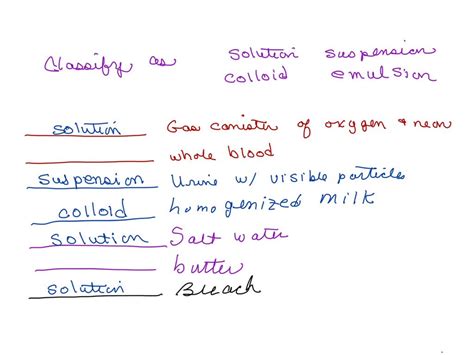 Classify as solution suspension
colloid emulsion
solution Gas canister of oxygen & neon
whole blood
suspension Urine w/ visible particles
colloid homogenized milk
solution Salt water
butter
solution Bleach